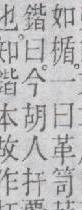 如楯一曰革
鍇曰今胡人扞
也知鍇本故作